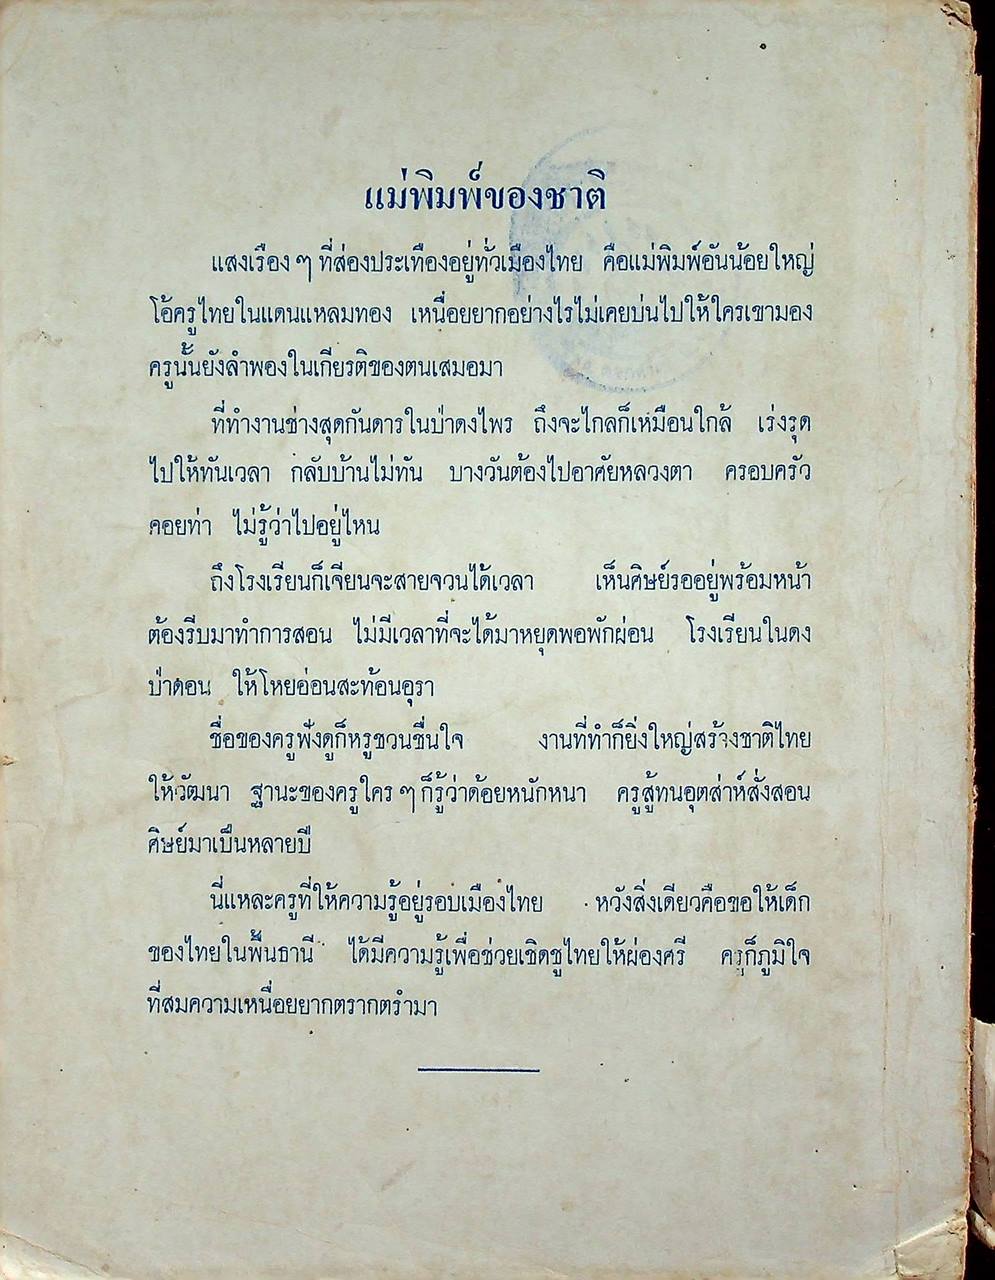 แม่พิมพ์ของชาติ
แสงเรือง ๆ ที่ส่องประเทืองอยู่ทั่วเมืองไทย คือแม่พิมพ์อันน้อยใหญ่
โอ้ครูไทยในแดนแหลมทอง เหนื่อยยากอย่างไรไม่เคยบ่นไปให้ใครเขามอง
ครูนั้นยังลำพองในเกียรติของตนเสมอมา
ที่ทำงานช่างสุดกันดารในป่าดงไพร ถึงจะไกลก็เหมือนใกล้ เร่งรุด
ไปให้ทันเวลา กลับบ้านไม่ทัน บางวันต้องไปอาศัยหลวงตา ครอบครัว
คอยท่า ไม่รู้ว่าไปอยู่ไหน
ถึงโรงเรียนก็เจียนจะสายจวนได้เวลา เห็นศิษย์รออยู่พร้อมหน้า
ต้องรีบมาทำการสอน ไม่มีเวลาที่จะได้มาหยุดพอพักผ่อน โรงเรียนในดง
ป่าดอน ให้โหยอ่อนสะท้อนอุรา
ชื่อของครูฟังดูก็หรูชวนชื่นใจ งานที่ทำก็ยิ่งใหญ่สร้างชาติไทย
ให้วัฒนา ฐานะของครูใคร ๆ ก็รู้ว่าด้อยหนักหนา ครูสู้ทนอุตส่าห์สั่งสอน
ศิษย์มาเป็นหลายปี
นี่แหละครูที่ให้ความรู้อยู่รอบเมืองไทย หวังสิ่งเดียวคือขอให้เด็ก
ของไทยในพื้นธานี ได้มีความรู้เพื่อช่วยเชิดชูไทยให้ผ่องศรี ครูก็ภูมิใจ
ที่สมความเหนื่อยยากตรากตรำมา